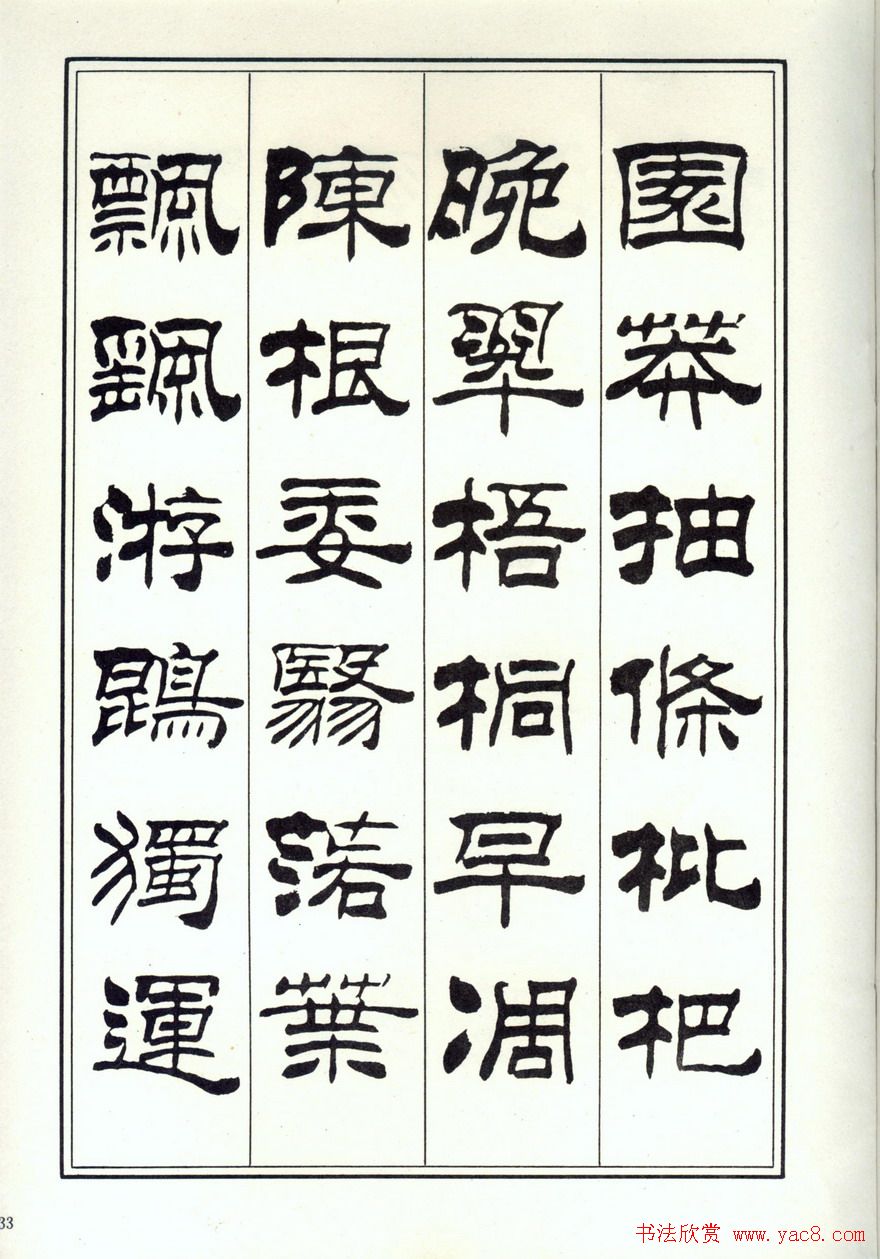 園莽抽條枇杷
晚翠梧桐早凋
陳根委翳落葉
飄飖游鵾獨運
33
书法欣赏 www.yac8.com